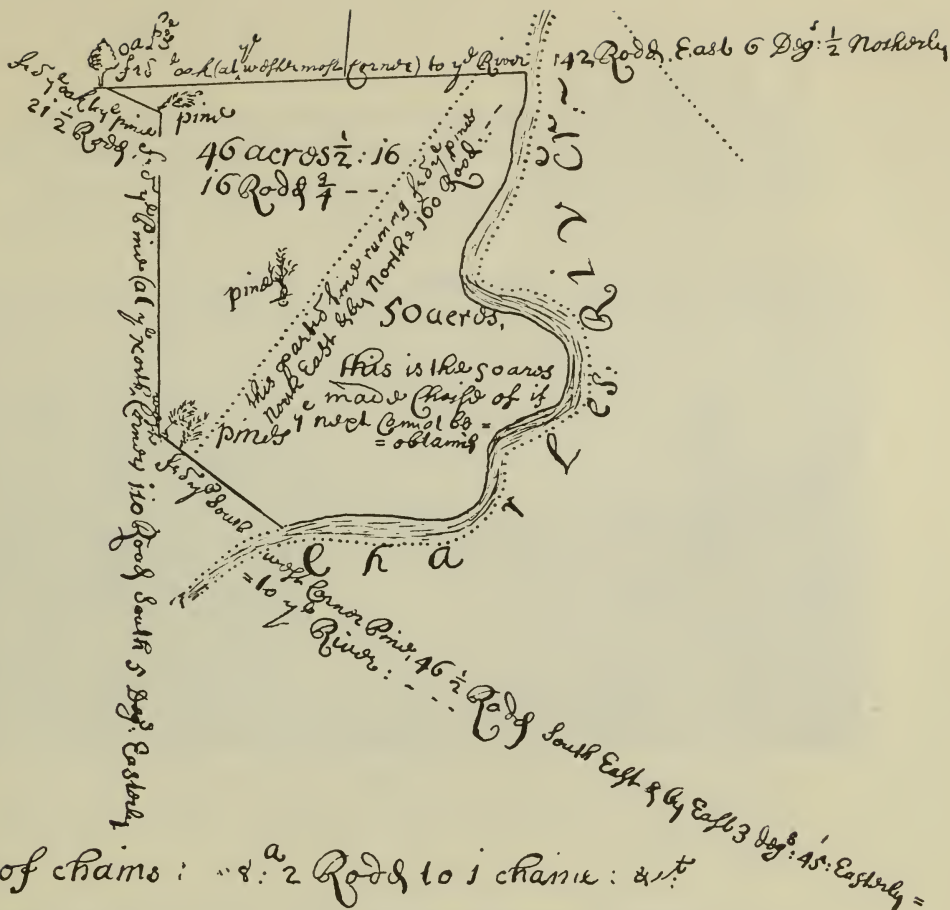 oak
frō yᵉ oak (at yᵉ westermost Corner) to yᵉ River 142 Rodd East 6 Degˢ: ½ Notherly
frō yᵉ oak to yᵉ pine
21 ½ Rodd
pine
46 acros ½ : 16
16 Rodd ¾ - -
this partiō line runing frō yᵉ pines
North East & by North 160 Rood : -
pine
50 acros,
this is the 50 aros
made Choise of if
yᵉ next Cannot be =
= obtaind
pines
frō yᵉ Pine (at yᵉ North Corner) 110 Rood South 5 Degˢ: Easterly
frō yᵉ South west Cornor Pine, 46 ½ Rodd South East & by East 3 degˢ: 45': Easterly =
= to yᵉ
River : - - -
Charles River -
of chams : 2 Rodd to 1 chame :